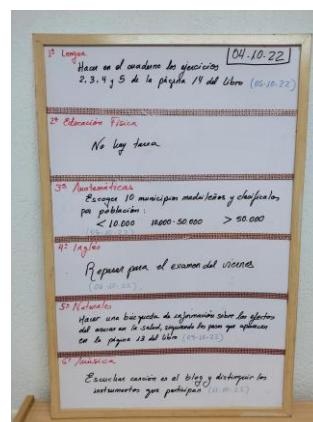 04.10.22
1º Lengua
Hacer en el cuaderno los ejercicios
2, 3, 4 y 5 de la página 14 del libro (05.10.22)
2º Educación Física
No hay tarea
3º Matemáticas
Escoger 10 municipios madrileños y clasifícalos
por población:
< 10.000 10.000-50.000 > 50.000
4º Inglés
Repasar para el examen del viernes
5º Naturales
Hacer una búsqueda de información sobre los efectos
del azucar en la salud, siguiendo los pasos que aparecen
en la página 13 del libro
6º Música
Escuchar canción en el blog y distinguir los
instrumentos que participan